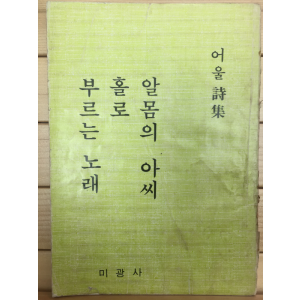 어울 詩集
알몸의 아씨
홀로
부르는 노래
미광사